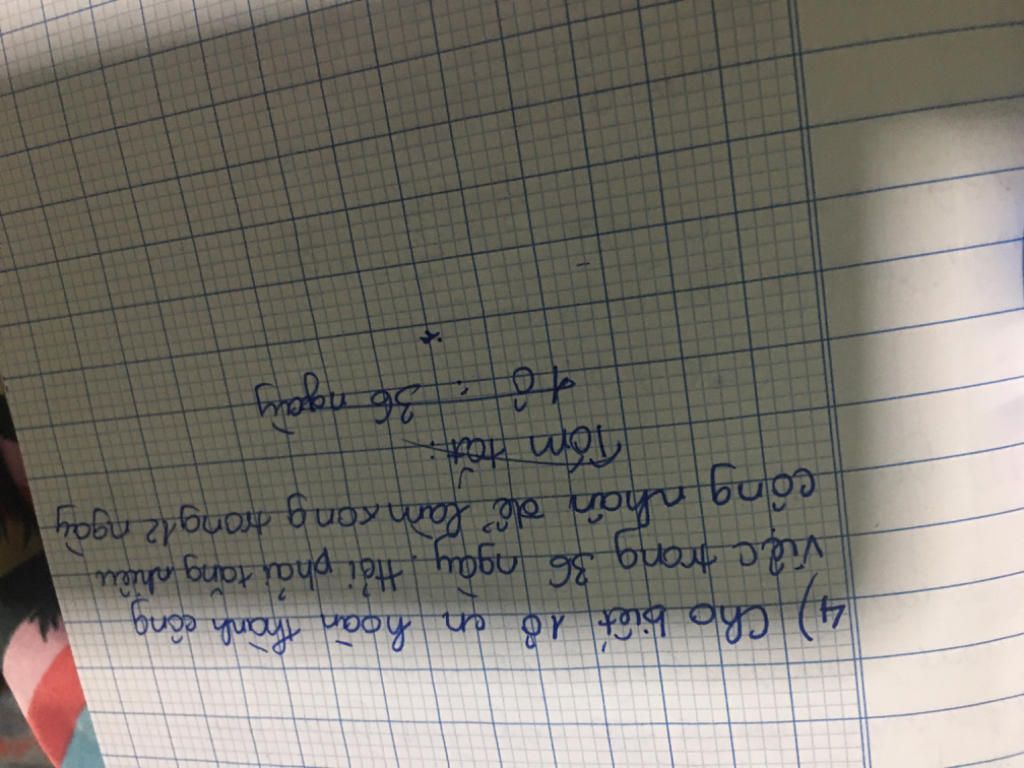 4) Cho biết 18 cn hoàn thành công
việc trong 36 ngày. Hỏi phải tăng nhiêu
công nhân để làm xong trong 12 ngày
Tóm tắt:
18 : 36 ngày